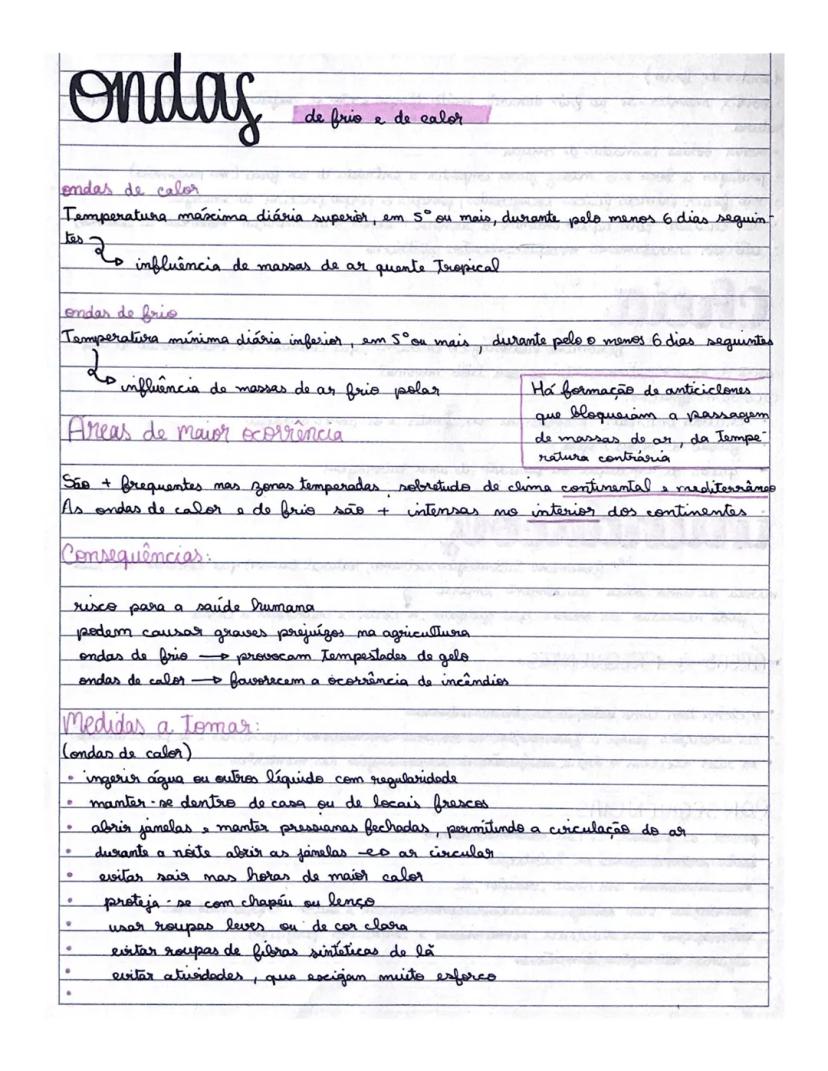 ondas
de frio e de calor
ondas de calor
Temperatura máxima diária superior, em 5° ou mais, durante pelo menos 6 dias seguin-
tes
influência de massas de ar quente Tropical
ondas de frio
Temperatura mínima diária inferior, em 5° ou mais, durante pelo o menos 6 dias seguintes
influência de massas de ar frio polar
Há formação de anticiclones
que bloqueiam a passagem
de massas de ar, da tempe-
ratura contrária
Áreas de maior ocorrência
São + frequentes nas zonas temperadas sobretudo de clima continental e mediterrâneo
As ondas de calor e de frio são + intensas no interior dos continentes
Consequências:
risco para a saúde humana
podem causar graves prejuízos na agricultura
ondas de frio → provocam tempestades de gelo
ondas de calor → favorecem a ocorrência de incêndios
Medidas a tomar:
(ondas de calor)
• ingerir água ou outros líquido com regularidade
• manter-se dentro de casa ou de locais frescos
• abrir janelas e manter pressianas fechadas, permitindo a circulação do ar
• durante a noite abrir as janelas → o ar circular
• evitar sair nas horas de maior calor
• proteja-se com chapéu ou lenço
• usar roupas leves ou de cor clara
• evitar roupas de fibras sintéticas de lã
• evitar atividades, que exigam muito esforco
•